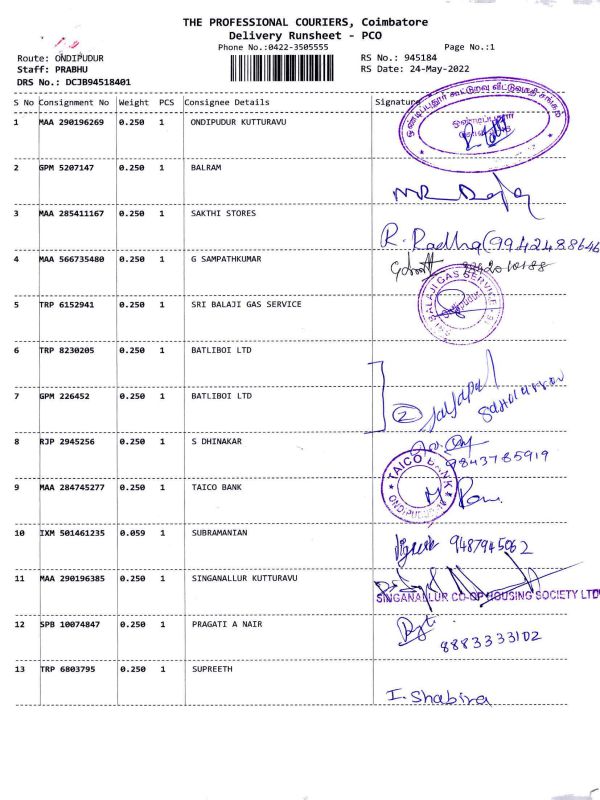 THE PROFESSIONAL COURIERS, Coimbatore
Delivery Runsheet - PCO
Phone No.:0422-3505555
Page No.:1
Route: ONDIPUDUR
RS No.: 945184
Staff: PRABHU
RS Date: 24-May-2022
DRS No.: DCJB94518401
S No Consignment No Weight PCS Consignee Details Signature
1 MAA 290196269 0.250 1 ONDIPUDUR KUTTURAVU
2 GPM 5207147 0.250 1 BALRAM
3 MAA 285411167 0.250 1 SAKTHI STORES
R. Radha (9942488646
4 MAA 566735480 0.250 1 G SAMPATHKUMAR
5 TRP 6152941 0.250 1 SRI BALAJI GAS SERVICE
SRI BALAJI GAS SERVICE
6 TRP 8230205 0.250 1 BATLIBOI LTD
7 GPM 226452 0.250 1 BATLIBOI LTD
2
8 RJP 2945256 0.250 1 S DHINAKAR
9843785919
9 MAA 284745277 0.250 1 TAICO BANK
TAICO BANK
ONDIPUDUR
10 IXM 501461235 0.059 1 SUBRAMANIAN
9487945062
11 MAA 290196385 0.250 1 SINGANALLUR KUTTURAVU
SINGANALLUR CO-OP HOUSING SOCIETY LTD
12 SPB 10074847 0.250 1 PRAGATI A NAIR
8883333102
13 TRP 6803795 0.250 1 SUPREETH
I. Shabira